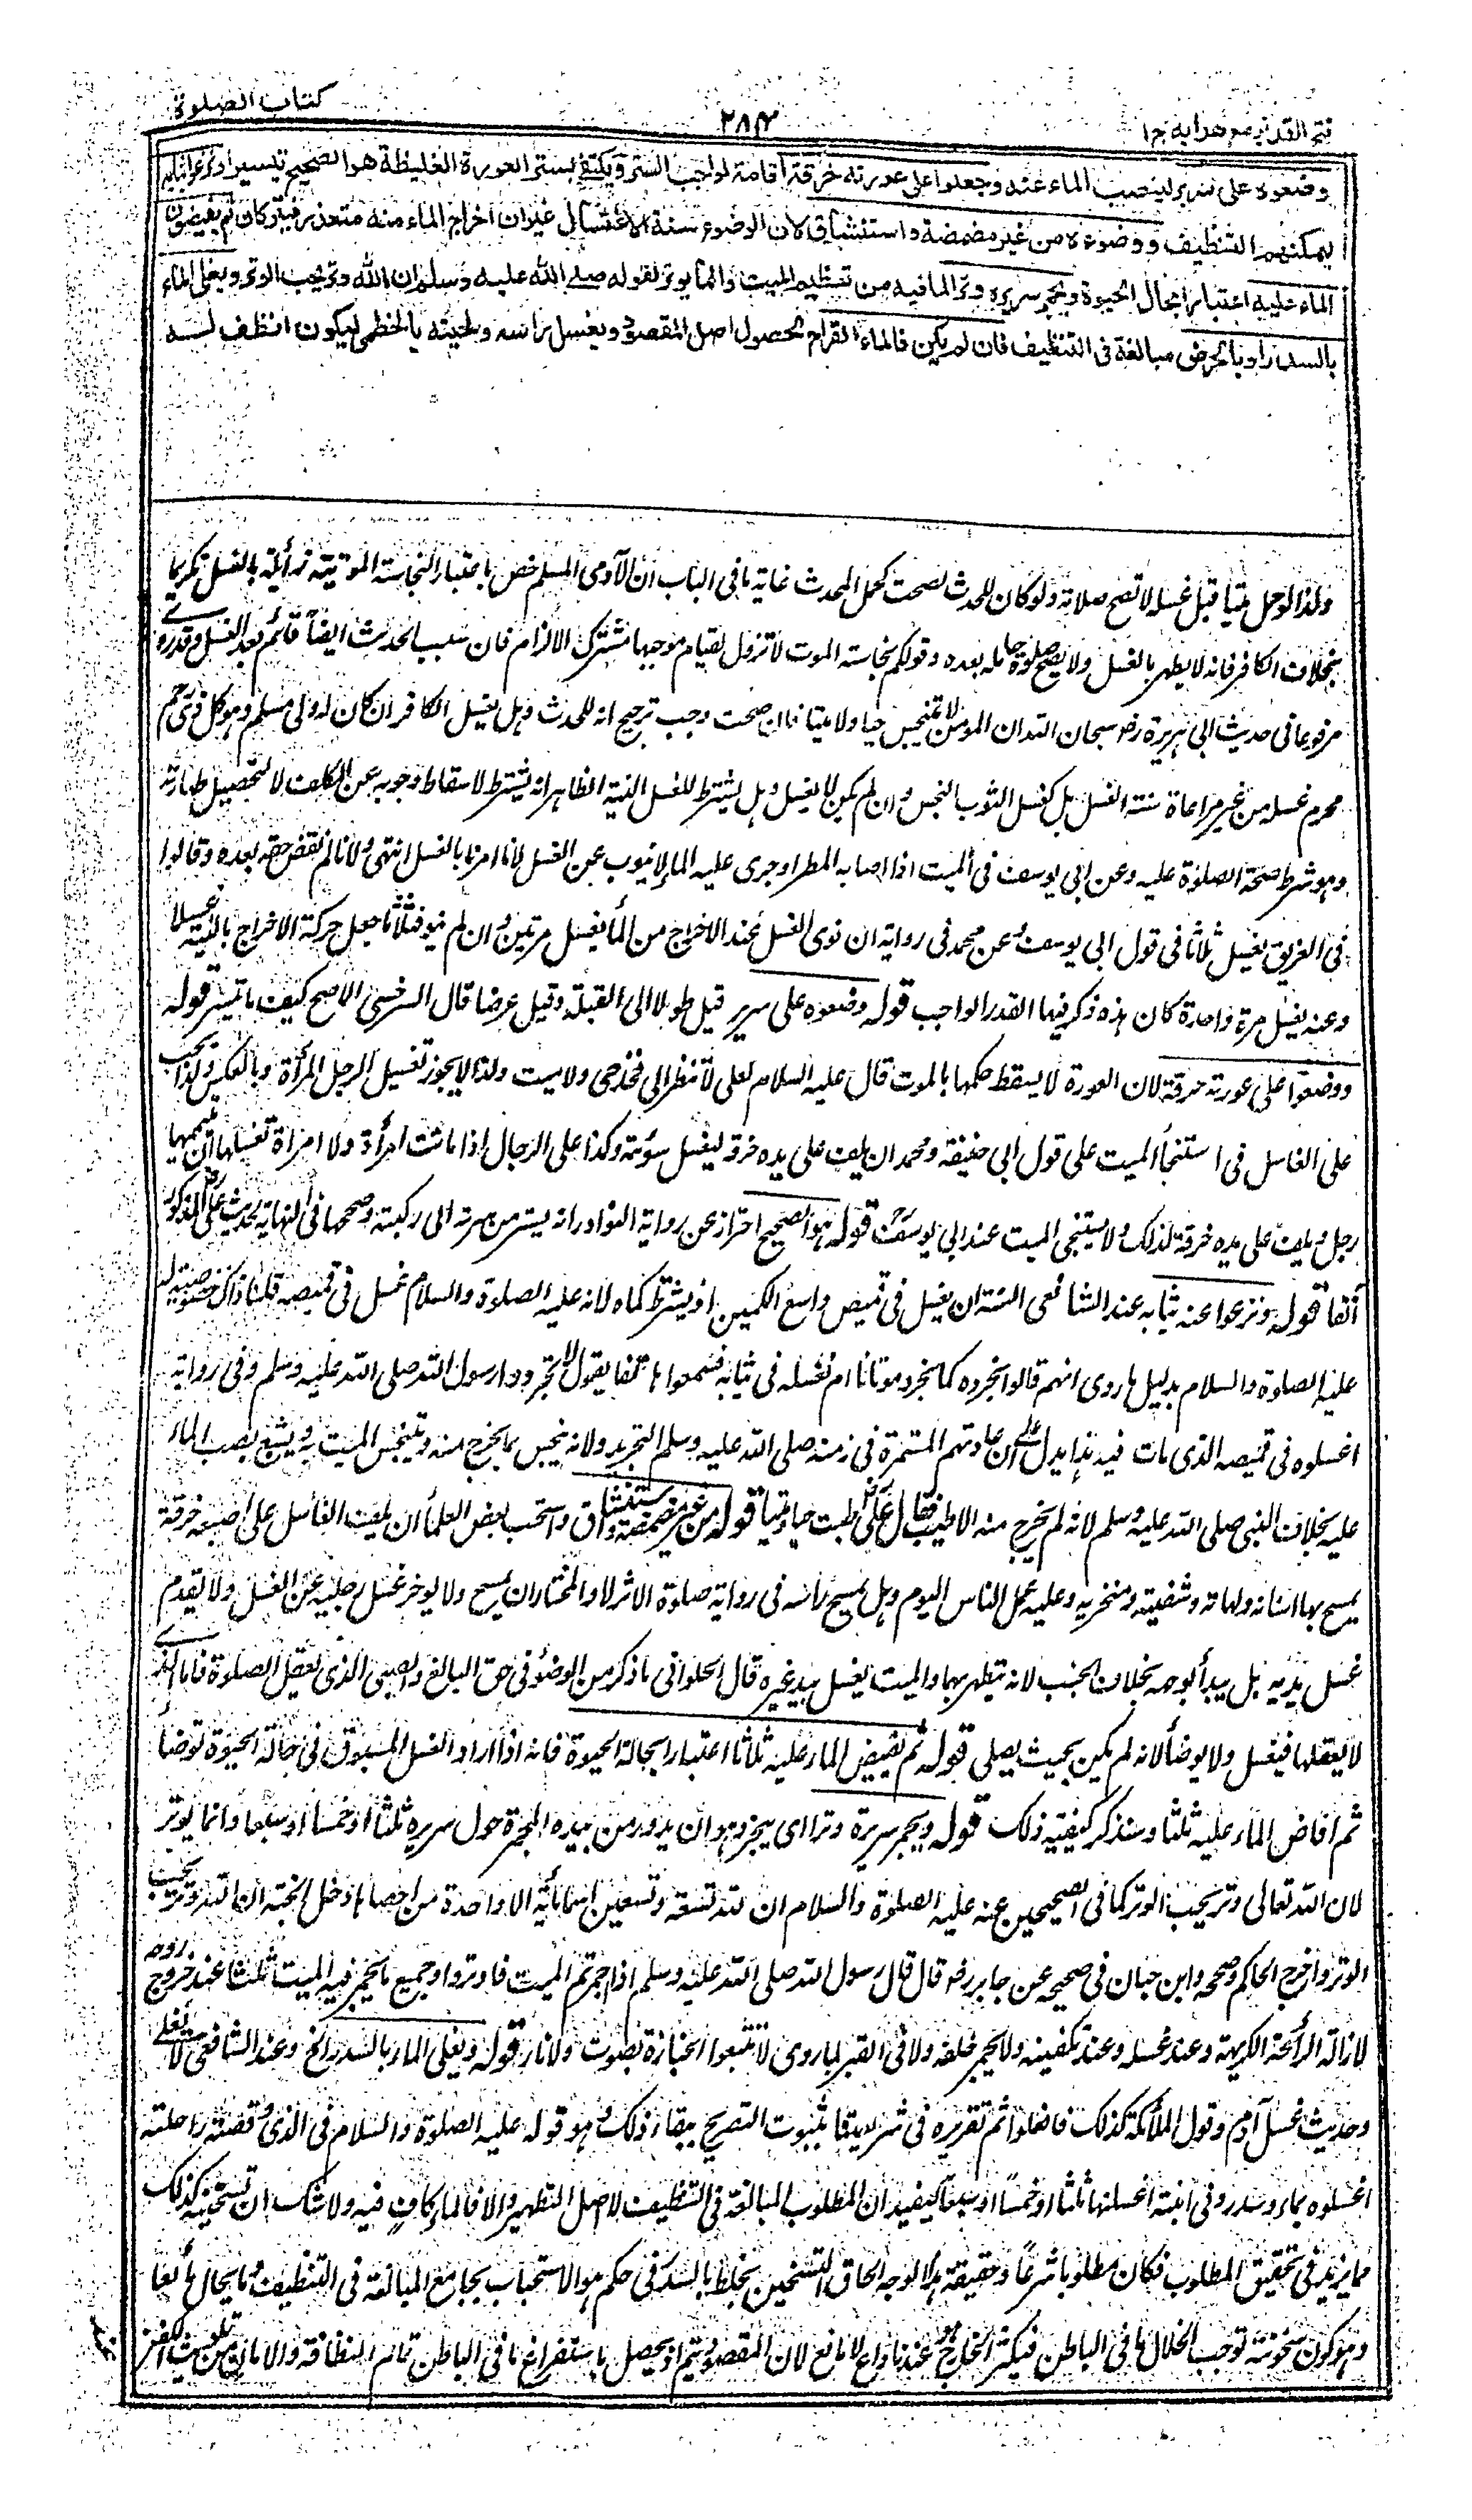 فتح القدير مع هدايه ج ا
٢٨٢
كتاب الصلوة
وضعوه على سرير لينصب الماء عنه وجعلوا على عورته خرقة اقامة لواجب الستر ويكتفى بستر العورة الغليظة هو الصحيح تيسيرا ونزعوا ثيابه
ليمكنهم التنظيف ووضوءه من غير مضمضة واستنشاق لان الوضوء سنة الاغتسال غير ان اخراج الماء منه متعذر فيتركان ثم يفيضون
الماء عليه اعتبارا بحال الحيوة ويجمر سريره وترا لما فيه من تعظيم الميت وانما يوتر لقوله صلے الله عليه وسلم ان الله وتر يحب الوتر ويغلى الماء
بالسدر او بالحرض مبالغة فى التنظيف فان لم يكن فالماء القراح لحصول اصل المقصود ويغسل راسه ولحيته بالخطمى ليكون انظف لسه
ولذا لو حمل ميتا قبل غسله لا تصح صلاته ولو كان للحدث لصحت كحمل المحدث غاية ما فى الباب ان الآدمى المسلم خص باعتبار النجاسة الموتية زائلة بالغسل تكريما
بخلاف الكافر فانه لا يطهر بالغسل ولا يصح صلوة حامله بعده وقولكم نجاسة الموت لا تزول لقيام موجبها مشترك الالزام فان سبب الحدث ايضا قائم بعد الغسل وقد روے
مرفوعا فى حديث ابى هريرة رضـ سبحان الله ان المومن لا يتنجس حيا ولا ميتا فان صحت وجب ترجيح انه للحدث وهل يغسل الكافر ان كان له ولى مسلم وهو كل ذى رحم
محرم غسله من غير مراعاة سنة الغسل بل كغسل الثوب النجس وان لم يكن لا يغسل وهل يشترط للغسل النية الظاهر انه يشترط لاسقاط وجوبه عن المكلف لا لتحصيل طهارته
وهو شرط صحة الصلوة عليه وعن ابى يوسف فى الميت اذا اصابه المطر او جرى عليه الماء لا ينوب عن الغسل لانا امرنا بالغسل انتهى ولانا لم نقض حقه بعده وقالوا
فى الغريق يغسل ثلاثا فى قول ابى يوسف وعن محمد فى رواية ان نوى الغسل عند الاخراج من الماء يغسل مرتين وان لم ينو فثلاثا جعل حركة الاخراج بالنية غسلا
وعنه يغسل مرة واحدة كان هذه ذكر فيها القدر الواجب قوله وضعوه على سرير قيل طولا الى القبلة وقيل عرضا قال السرخسى الاصح كيف ما تيسر قوله
ووضعوا على عورته خرقة لان العورة لا يسقط حكمها بالموت قال عليه السلام لعلى لا تنظر الى فخذ حى ولا ميت ولذا لا يجوز تغسيل الرجل المرأة وبالعكس ولذا يجب
على الغاسل فى استنجاء الميت على قول ابى حنيفة ومحمد ان يلف على يده خرقة ليغسل سوءته وكذا على الرجال اذا ماتت امرأة ولا امرأة تغسلها ان ييممها
رجل ويلف على يده خرقة لذلك ولا يستنجى الميت عند ابى يوسف قوله هو الصحيح احتراز عن رواية النوادر انه يستر من سرته الى ركبته وصححها فى النهاية بحديث على المذكور
آنفا قوله ونزعوا عنه ثيابه عند الشافعى السنة ان يغسل فى قميص واسع الكمين او يشرط كماه لانه عليه الصلوة والسلام غسل فى قميصه قلنا ذاك خصوصية له
عليه الصلوة والسلام بدليل ما روى انهم قالوا نجرده كما نجرد موتانا ام نغسله فى ثيابه فسمعوا هاتفا يقول لا تجردوا رسول الله صلى الله عليه وسلم وفى رواية
اغسلوه فى قميصه الذى مات فيه فهذا يدل على ان عادتهم المستمرة فى زمنه صلى الله عليه وسلم التجريد ولانه يتنجس بما يخرج منه ويتنجس الميت به ويشيع بصب الماء
عليه بخلاف النبى صلى الله عليه وسلم لانه لم يخرج منه الا طيب فقال على طبت حيا وميتا قوله من غير مضمضة واستنشاق واستحب بعض العلماء ان يلف الغاسل على اصبعه خرقة
يمسح بها اسنانه ولهاته وشفتيه ومنخريه وعليه عمل الناس اليوم وهل يمسح راسه فى رواية صلوة الاثر لا والمختار ان يمسح ولا يوخر غسل رجليه عن الغسل ولا يقدم
غسل يديه بل يبدأ بوجهه بخلاف الجنب لانه يتطهر بهما والميت يغسل بيد غيره قال الحلوانى ما ذكر من الوضوء فى حق البالغ والصبى الذى يعقل الصلوة فاما الذے
لا يعقلها فيغسل ولا يوضأ لانه لم يكن بحيث يصلى قوله ثم يفيض الماء عليه ثلاثا اعتبارا بحالة الحيوة فانه اذا اراد الغسل المسنون فى حالة الحيوة توضأ
ثم افاض الماء عليه ثلثا وسنذكر كيفية ذلك قوله ويجمر سريره وترا اى يبخر وهو ان يدور من بيده المجمرة حول سريره ثلثا او خمسا او سبعا وانما يوتر
لان الله تعالى وتر يحب الوتر كما فى الصحيحين عنه عليه الصلوة والسلام ان لله تسعة وتسعين اسما مائة الا واحدة من احصاها دخل الجنة ان الله وتر يحب
الوتر واخرج الحاكم وصححه وابن حبان فى صحيحه عن جابر رضـ قال قال رسول الله صلى الله عليه وسلم اذا اجمرتم الميت فاوتروا وجميع ما يجمر فيه الميت ثلثا عند خروج روحه
لازالة الرائحة الكريهة وعند غسله وعند تكفينه ولا يجمر خلفه ولا فى القبر لما روى لا تتبعوا الجنازة بصوت ولا نار قوله ويغلى الماء بالسدر الخ وعند الشافعى لا يغلى
وحديث غسل آدم وقول الملائكة كذلك فافعلوا ثم تقريره فى شريعتنا بثبوت التصريح ببقاء ذلك وهو قوله عليه الصلوة والسلام فى الذى وقصته راحلته
اغسلوه بماء وسدر وفى ابنته اغسلنها ثلثا او خمسا او سبعا يفيد ان المطلوب المبالغة فى التنظيف لا اصل التطهير والا فالماء كاف فيه ولا شك ان تسخينه كذلك
مما يزيد فى تحقيق المطلوب فكان مطلوبا شرعا وحقيقة هذا الوجه الحاق التسخين بخلطه بالسدر فى حكم هو الاستحباب بجامع المبالغة فى التنظيف وما يخال مانعا
وهو كون سخونته توجب انحلال ما فى الباطن فيكثر الخارج هو عندنا داع لا مانع لان المقصود يتم اذ يحصل باستفراغ ما فى الباطن تمام النظافة والامان من تلويث الكفن